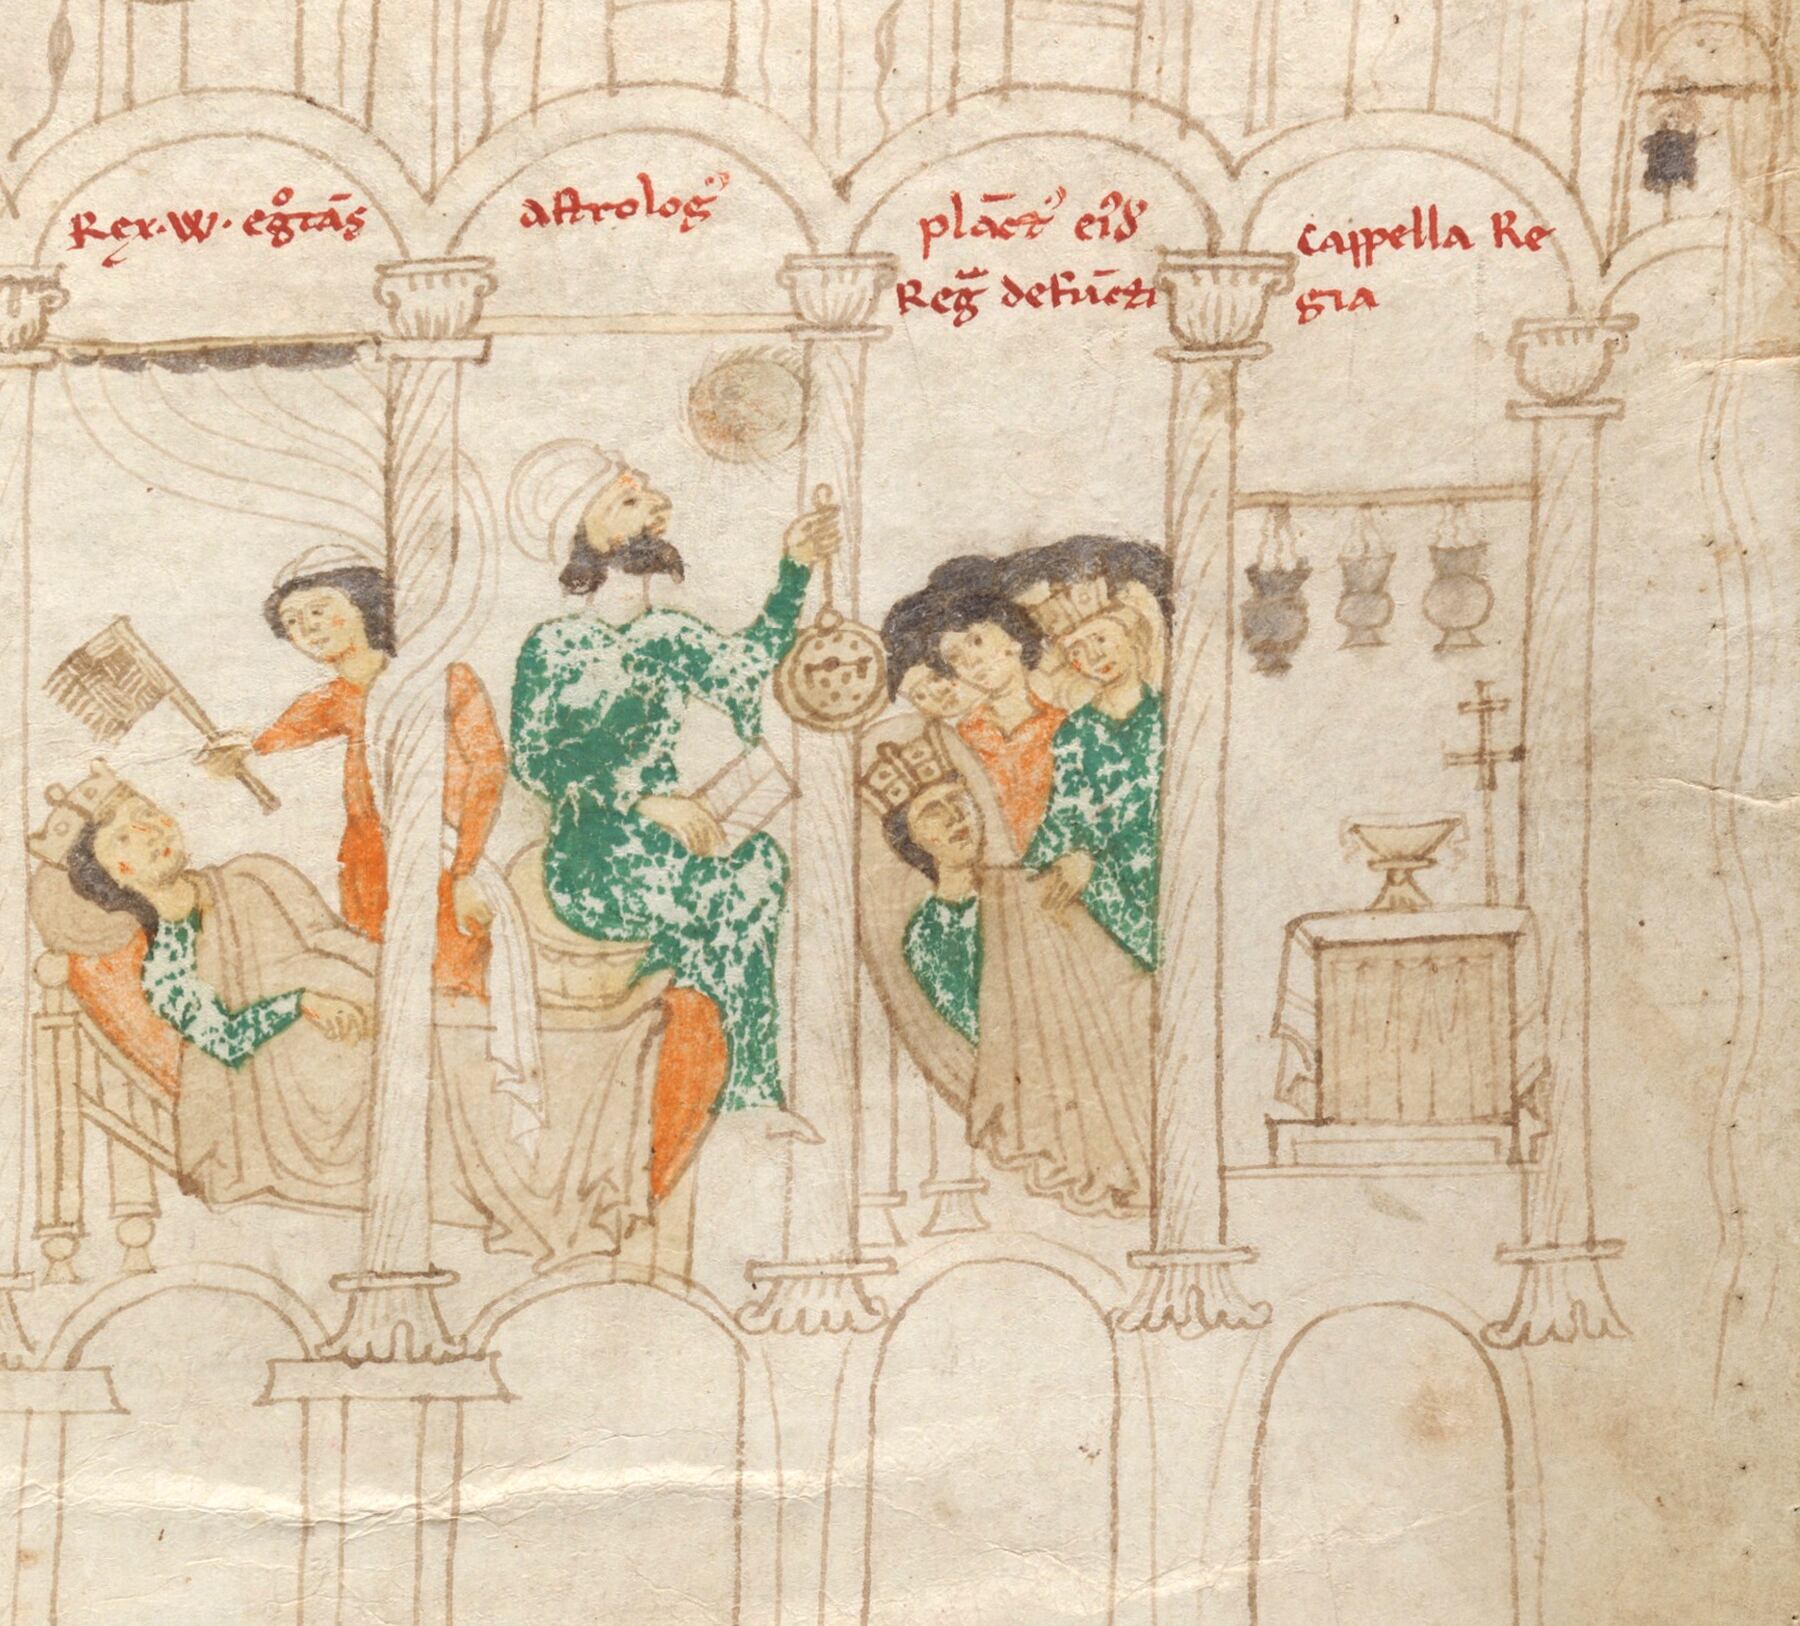 Rex · W · egͦtās
astrologꝰ
plāctꝰ eiꝰd̄
Reg̃ defūcti
cappella Re
gia